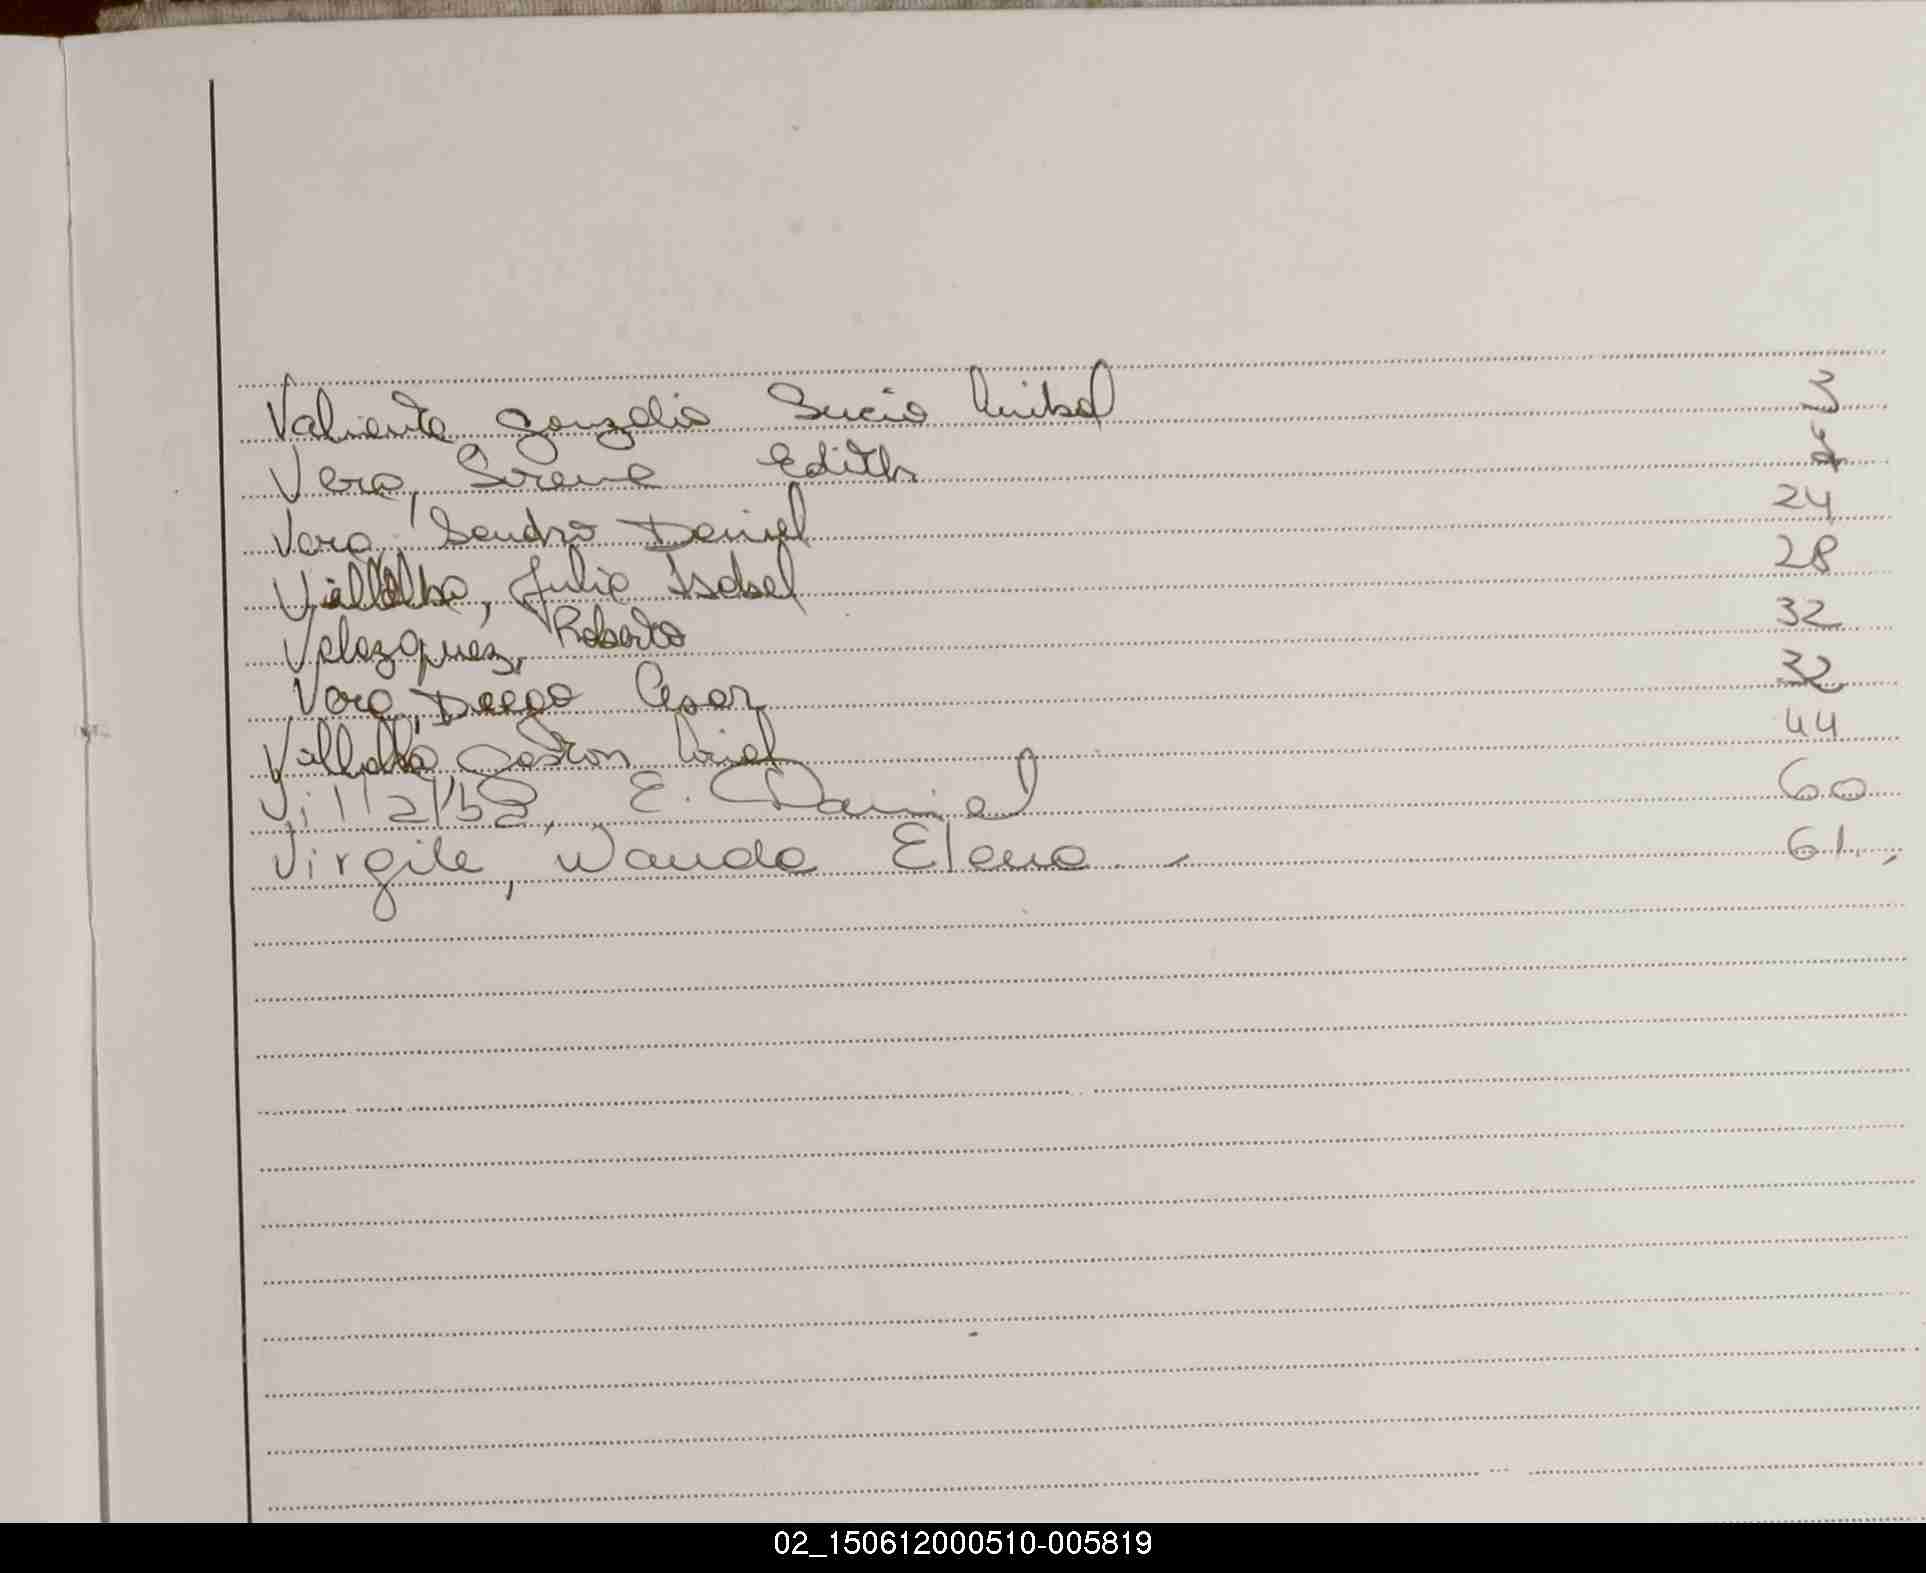 Valiente Gonzalis Lucio Anibal 3
Vera, Irene Edith
Vera, Sandro Daniel 24
Villalba, Julia Isabel 28
Velazquez, Roberto 32
Vera, Diego Cesar 32
Villalba Gaston Ariel 44
Villalba, E. Daniel 60
Virgile, Wanda Elena 61
02_150612000510-005819